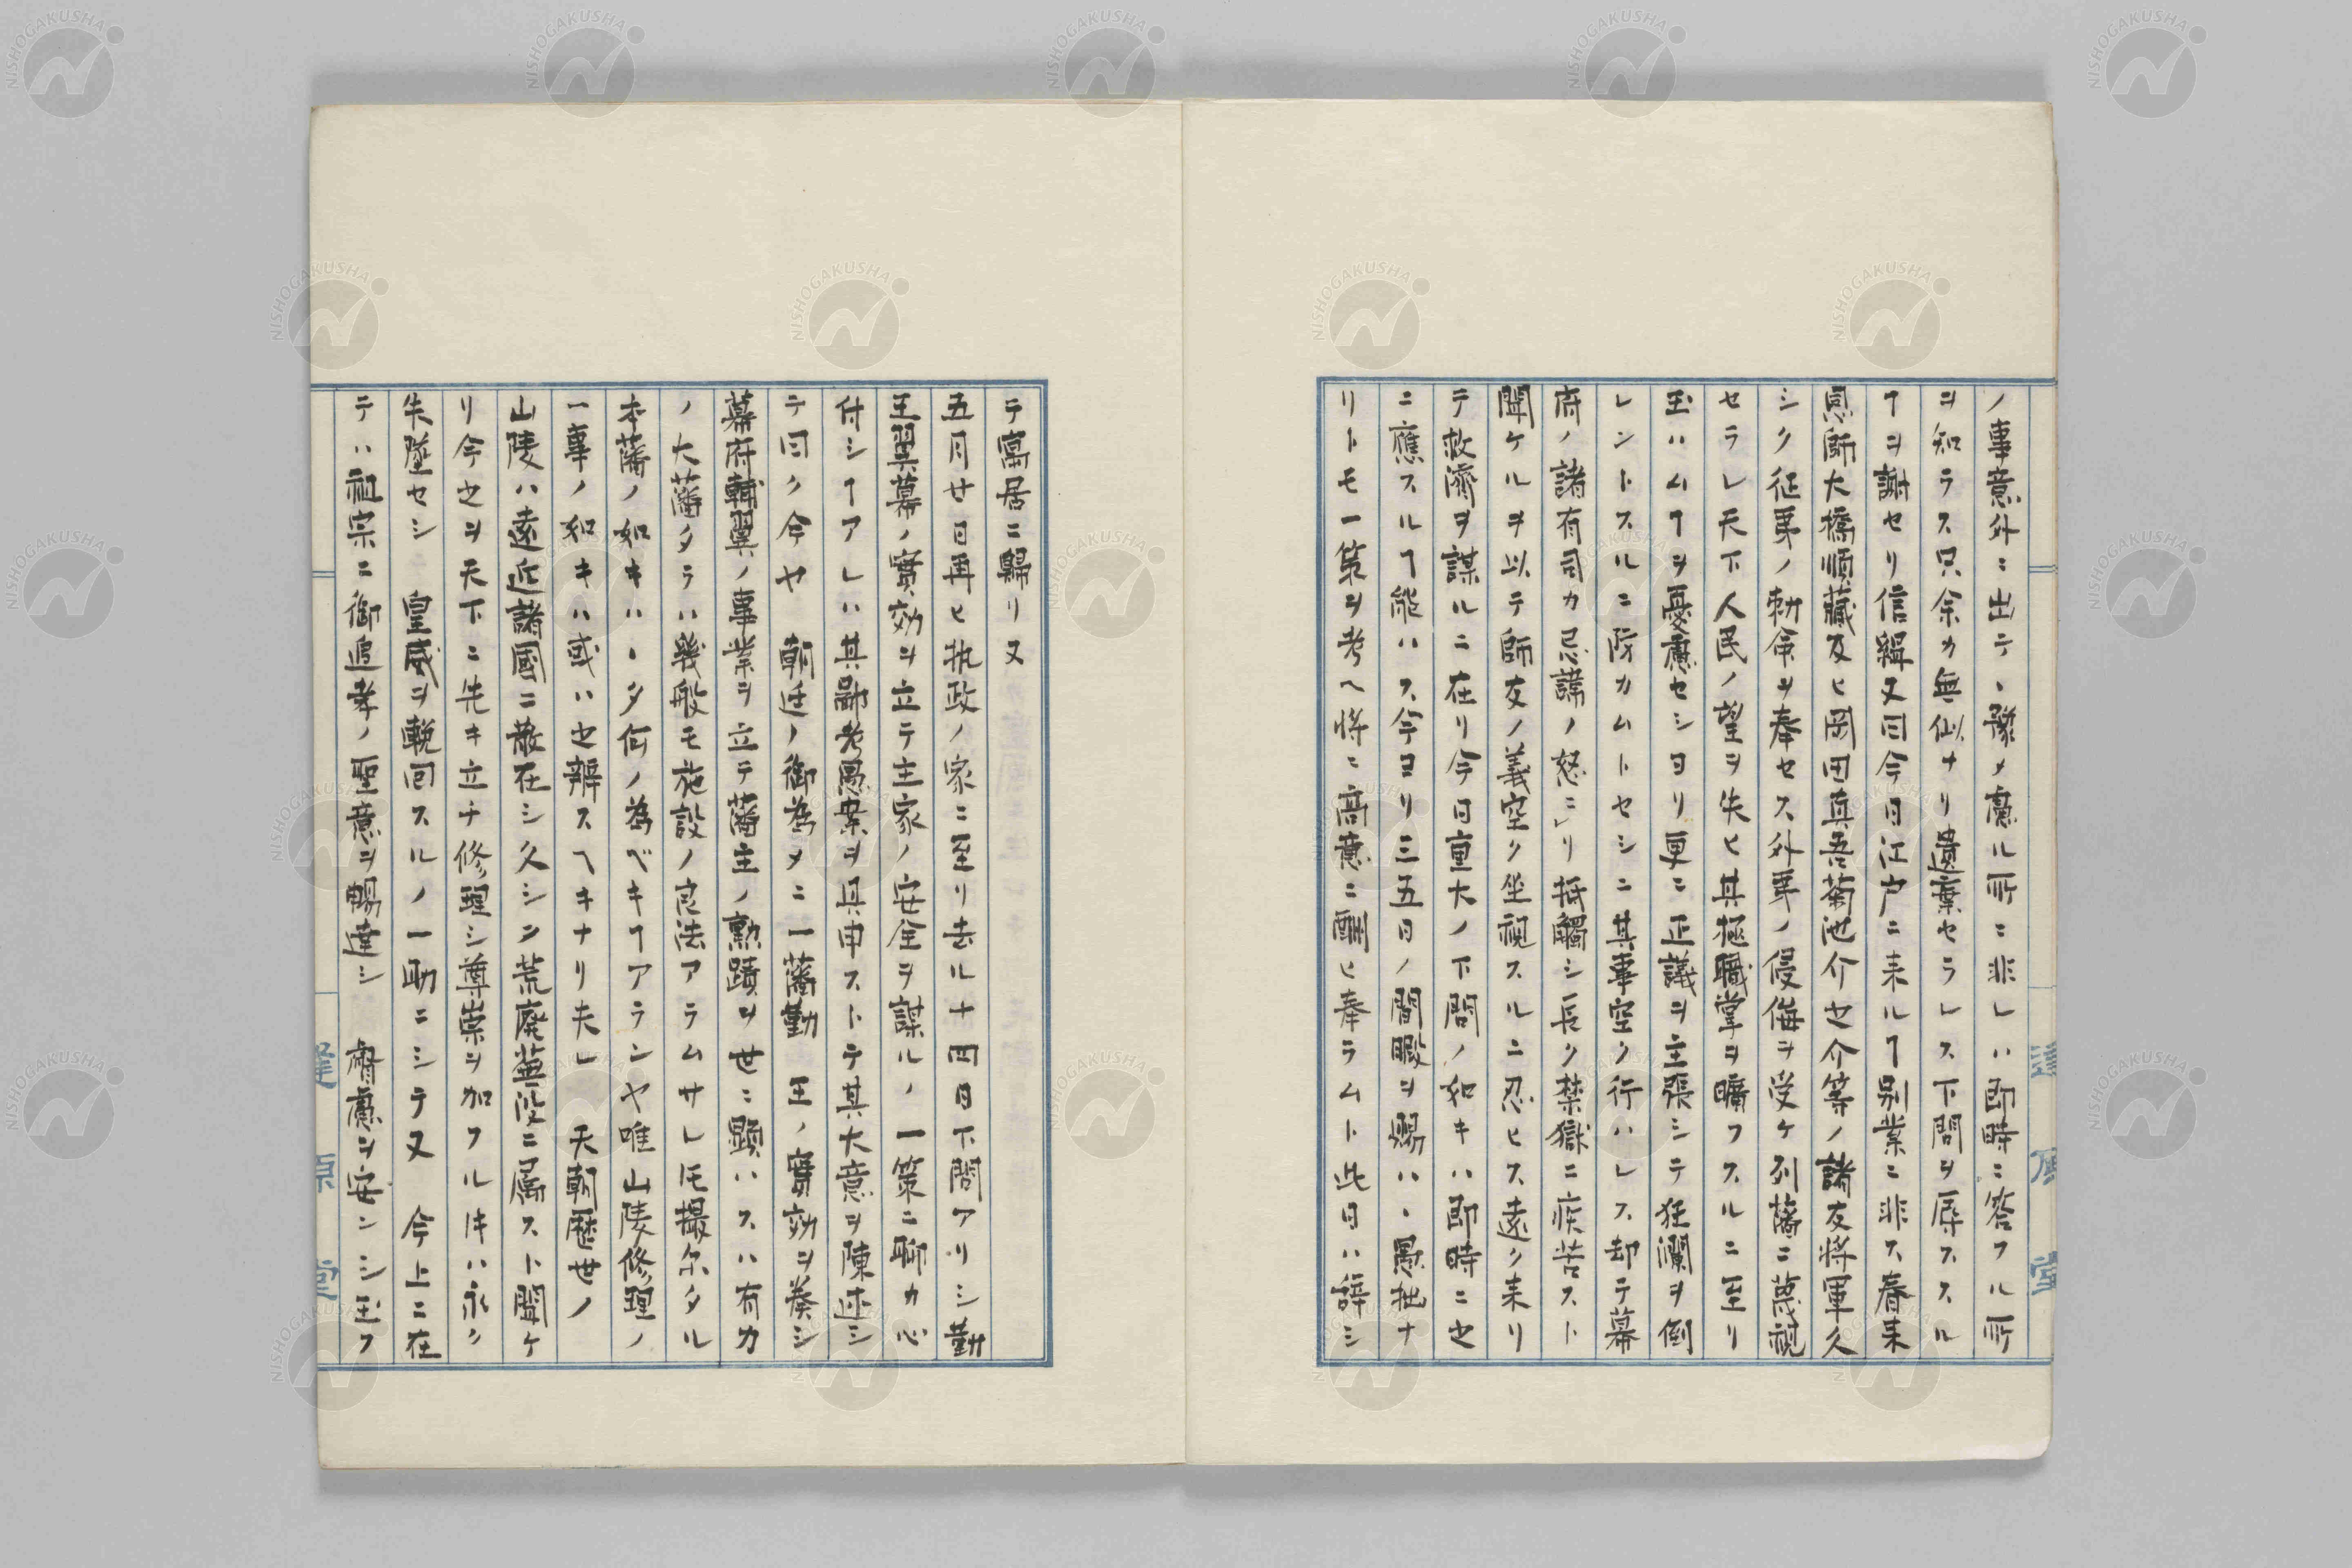 ノ事意外ニ出テ、豫メ慮ル所ニ非レハ即時ニ答フル所
ヲ知ラス只余カ無似ナリ遺棄セラレス下問ヲ辱ススル
ヿヲ謝セリ信緝又曰今日江戸ニ来ルヿ別業ニ非ス春来
恩師大橋順藏及ヒ岡田真吾菊池介之介等ノ諸友将軍久
シク征軍ノ勅命ヲ奉セス外軍ノ侵侮ヲ受ケ列藩ニ蔑視
セラレ天下人民ノ望ヲ失ヒ其極職掌ヲ曠フスルニ至リ
玉ハムヿヲ憂慮セシヨリ更ニ正議ヲ主張シテ狂瀾ヲ倒
レントスルニ防カムトセシニ其事空ク行ハレス却テ幕
府ノ諸有司カ忌諱ノ怒ニリ抵觸シ長ク禁獄ニ疾苦スト
聞ケルヲ以テ師友ノ義空ク坐視スルニ忍ヒス遠ク来リ
テ救濟ヲ謀ルニ在リ今日重大ノ下問ノ如キハ即時ニ之
ニ應スルヿ能ハス今ヨリ三五日ノ間暇ヲ賜ハヽ愚拙ナ
リトモ一策ヲ考ヘ将ニ高意ニ酬ヒ奉ラムト此日ハ辞シ
テ寓居ニ歸リ又
五月廿日再ヒ执政ノ家ニ至リ去ル十四日下問アリシ勤
王翼幕ノ實効ヲ立テ主家ノ安全ヲ謀ルノ一策ニ聊カ心
付シヿアレハ其鄙考愚案ヲ具申ストテ其大意ヲ陳述シ
テ曰ク今ヤ 朝廷ノ御為メニ一藩勤 王ノ實効ヲ奏シ
幕府輔翼ノ事業ヲ立テ藩主ノ勲蹟ヲ世ニ顕ハスハ有力
ノ大藩タラハ幾般モ施設ノ良法アラムサレ𪜈撮尓タル
本藩ノ如キハヽタ何ノ為ベキヿアランヤ唯山陵修理ノ
一事ノ如キハ或ハ之辨スヘキナリ夫レ 天朝歴世ノ
山陵ハ遠近諸國ニ散在シ久シク荒廃蕪没ニ属スト聞ケ
リ今之ヲ天下ニ先キ立チ修理シ尊崇ヲ加フルキハ永ク
失墜セシ 皇威ヲ輓回スルノ一助ニシテ又 今上ニ在
テハ祖宗ニ御追孝ノ聖意ヲ暢達シ 睿慮ヲ安ンシ玉フ